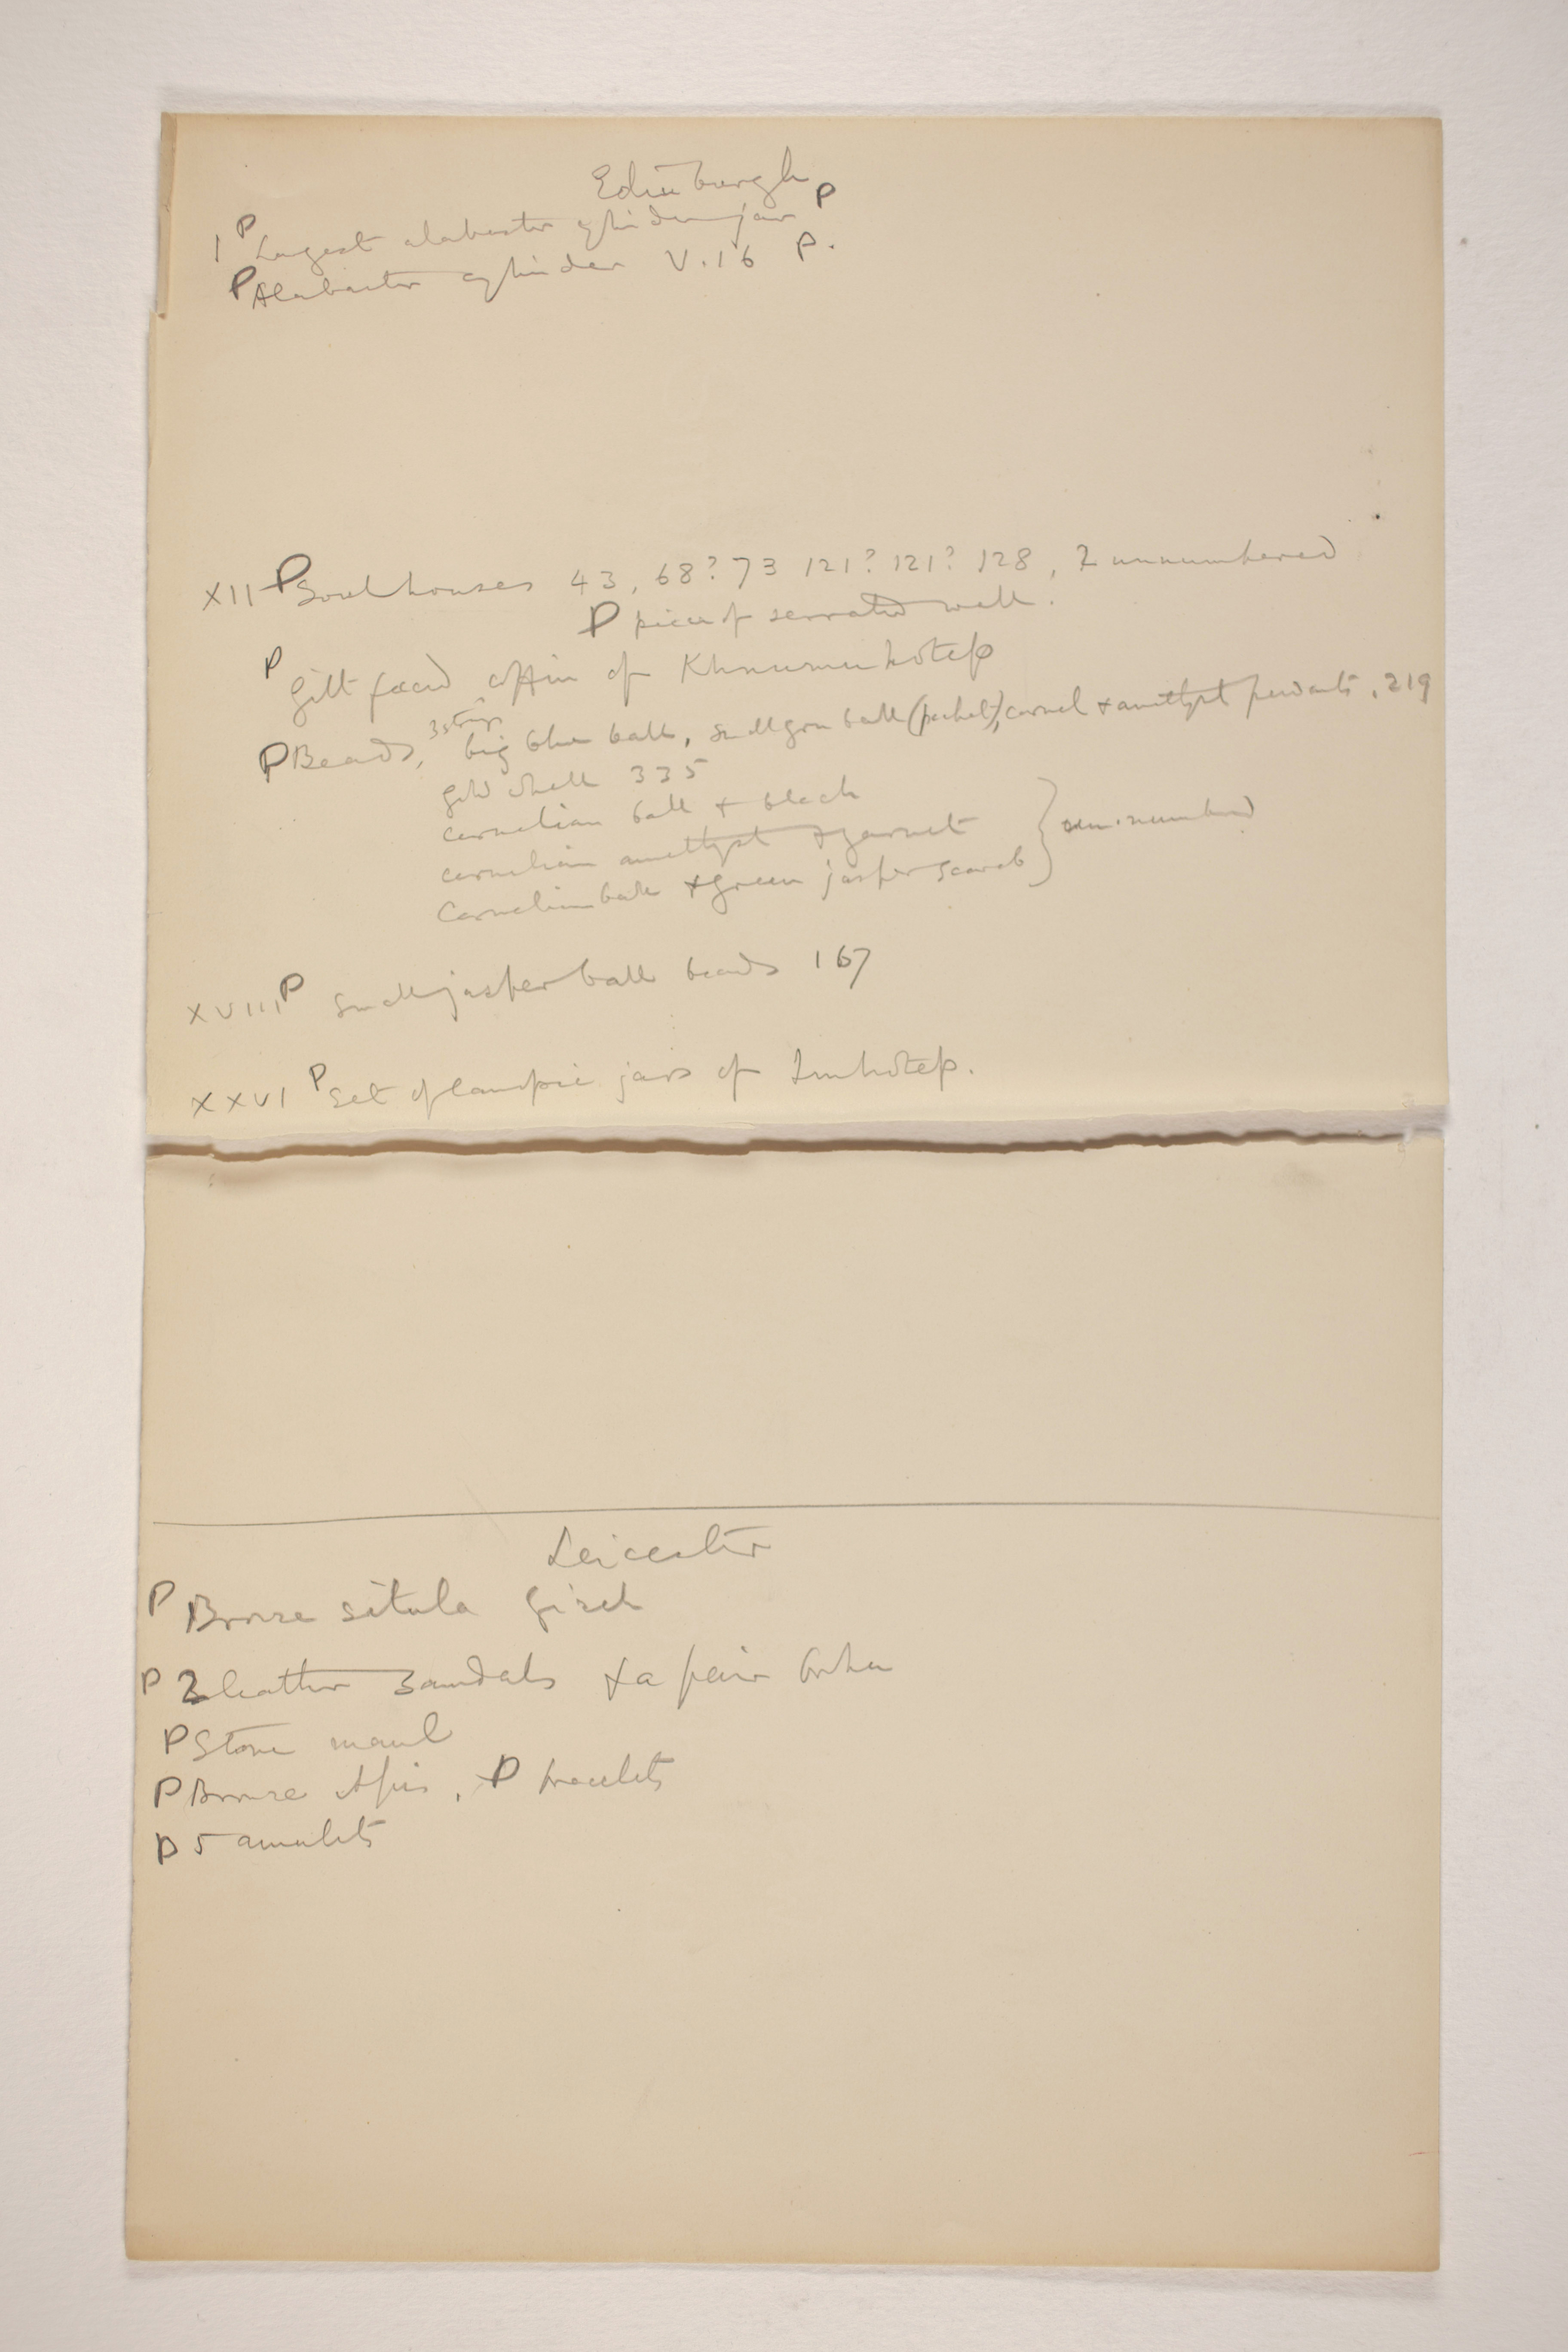 Edinburgh
I P Largest alabaster cylinder jar P
P Alabaster cylinder V.16 P.
XII P Soul houses 43, 68? 73 121? 121? 128, 2 unnumbered
P piece of serrated wall.
P Gilt faced coffin of Khnumuhotep
P Beads, 3 strings big blue ball, small grn ball (packet), carnel + amethyst pendants, 219
gold shell 335
carnelian ball + black
carnelian amethyst + garnet
Carnelian ball + green jasper scarab } un-numbered
XVIII P Small jasper ball beads 167
XXVI P Set of canopic jars of Imhotep.
Leicester
P Bronze situla Gizeh
P 2 leather sandals + a pair
P Stone maul
P Bronze Apis, P bracelets
P 5 amulets